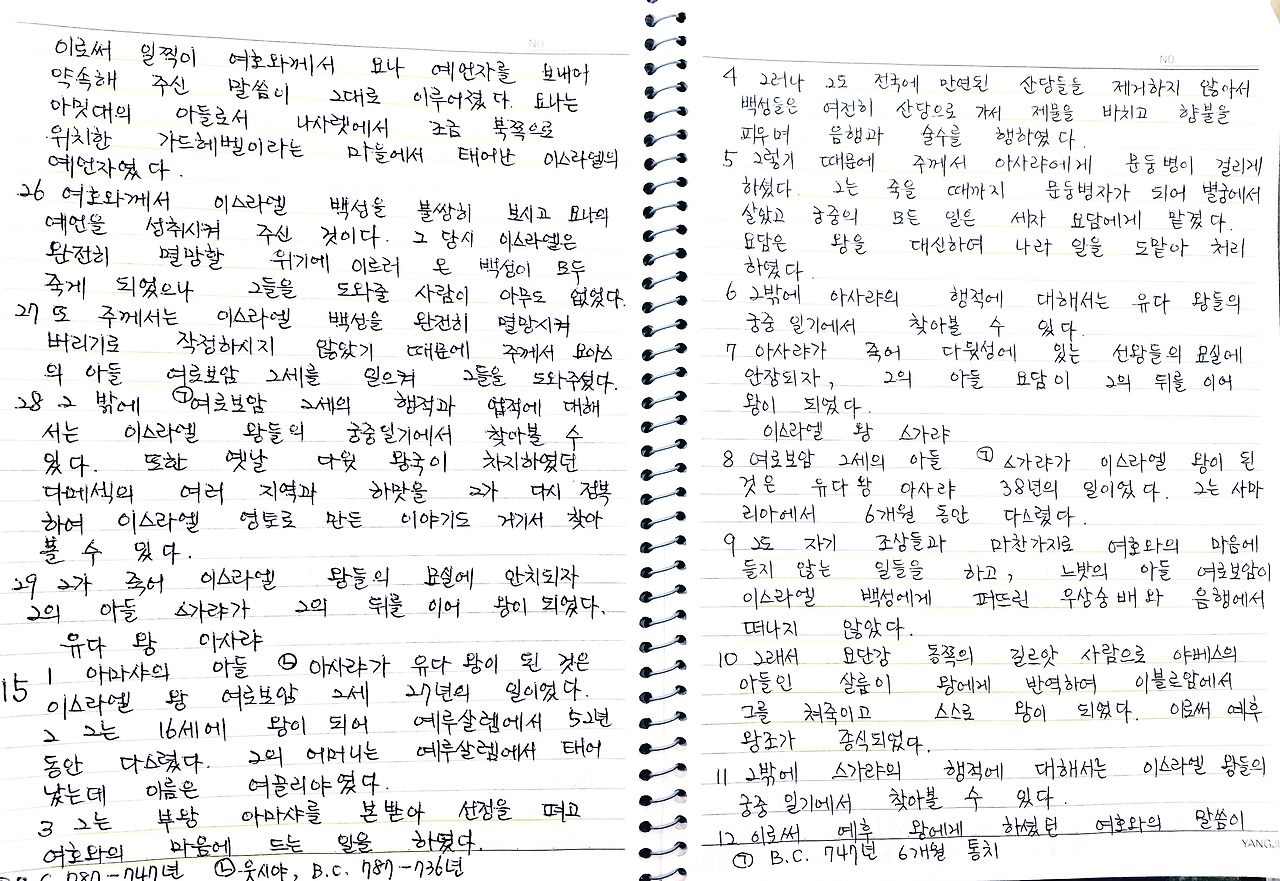 NO
이로써 일찍이 여호와께서 요나 예언자를 보내어
약속해 주신 말씀이 그대로 이루어졌다. 요나는
아밋대의 아들로서 나사렛에서 조금 북쪽으로
위치한 가드헤벨이라는 마을에서 태어난 이스라엘의
예언자였다.
26 여호와께서 이스라엘 백성을 불쌍히 보시고 요나의
예언을 성취시켜 주신 것이다. 그 당시 이스라엘은
완전히 멸망할 위기에 이르러 온 백성이 모두
죽게 되었으나 그들을 도와줄 사람이 아무도 없었다.
27 또 주께서는 이스라엘 백성을 완전히 멸망시켜
버리기로 작정하시지 않았기 때문에 주께서 요아스
의 아들 여로보암 2세를 일으켜 그들을 도와주셨다.
28 그 밖에 ㉠여로보암 2세의 행적과 업적에 대해
서는 이스라엘 왕들의 궁중일기에서 찾아볼 수
있다. 또한 옛날 다윗 왕국이 차지하였던
다메섹의 여러 지역과 하맛을 그가 다시 정복
하여 이스라엘 영토로 만든 이야기도 거기서 찾아
볼 수 있다.
29 그가 죽어 이스라엘 왕들의 묘실에 안치되자
그의 아들 스가랴가 그의 뒤를 이어 왕이 되었다.
유다 왕 아사랴
15 1 아마샤의 아들 ㉡ 아사랴가 유다 왕이 된 것은
이스라엘 왕 여로보암 2세 27년의 일이었다.
2 그는 16세에 왕이 되어 예루살렘에서 52년
동안 다스렸다. 그의 어머니는 예루살렘에서 태어
났는데 이름은 여골리야였다.
3 그는 부왕 아마샤를 본받아 선정을 펴고
여호와의 마음에 드는 일을 하였다.
787-747년 ㉡ 웃시야, B.C. 787-736년
NO
4 그러나 그도 전국에 만연된 산당들을 제거하지 않아서
백성들은 여전히 산당으로 가서 제물을 바치고 향불을
피우며 음행과 술수를 행하였다.
5 그렇기 때문에 주께서 아사랴에게 문둥병이 걸리게
하셨다. 그는 죽을 때까지 문둥병자가 되어 별궁에서
살았고 궁중의 모든 일은 세자 요담에게 맡겼다.
요담은 왕을 대신하여 나라 일을 도맡아 처리
하였다.
6 그밖에 아사랴의 행적에 대해서는 유다 왕들의
궁중 일기에서 찾아볼 수 있다.
7 아사랴가 죽어 다윗성에 있는 선왕들의 묘실에
안장되자, 그의 아들 요담이 그의 뒤를 이어
왕이 되었다.
이스라엘 왕 스가랴
8 여로보암 2세의 아들 ㉠ 스가랴가 이스라엘 왕이 된
것은 유다왕 아사랴 38년의 일이었다. 그는 사마
리아에서 6개월 동안 다스렸다.
9 그도 자기 조상들과 마찬가지로 여호와의 마음에
들지 않는 일들을 하고, 느밧의 아들 여로보암이
이스라엘 백성에게 퍼뜨린 우상숭배와 음행에서
떠나지 않았다.
10 그래서 요단강 동쪽의 길르앗 사람으로 야베스의
아들인 살룸이 왕에게 반역하여 이블르암에서
그를 쳐죽이고 스스로 왕이 되었다. 이로써 예후
왕조가 종식되었다.
11 그밖에 스가랴의 행적에 대해서는 이스라엘 왕들의
궁중 일기에서 찾아볼 수 있다.
12 이로써 예후 왕에게 하셨던 여호와의 말씀이
㉠ B.C. 747년 6개월 통치